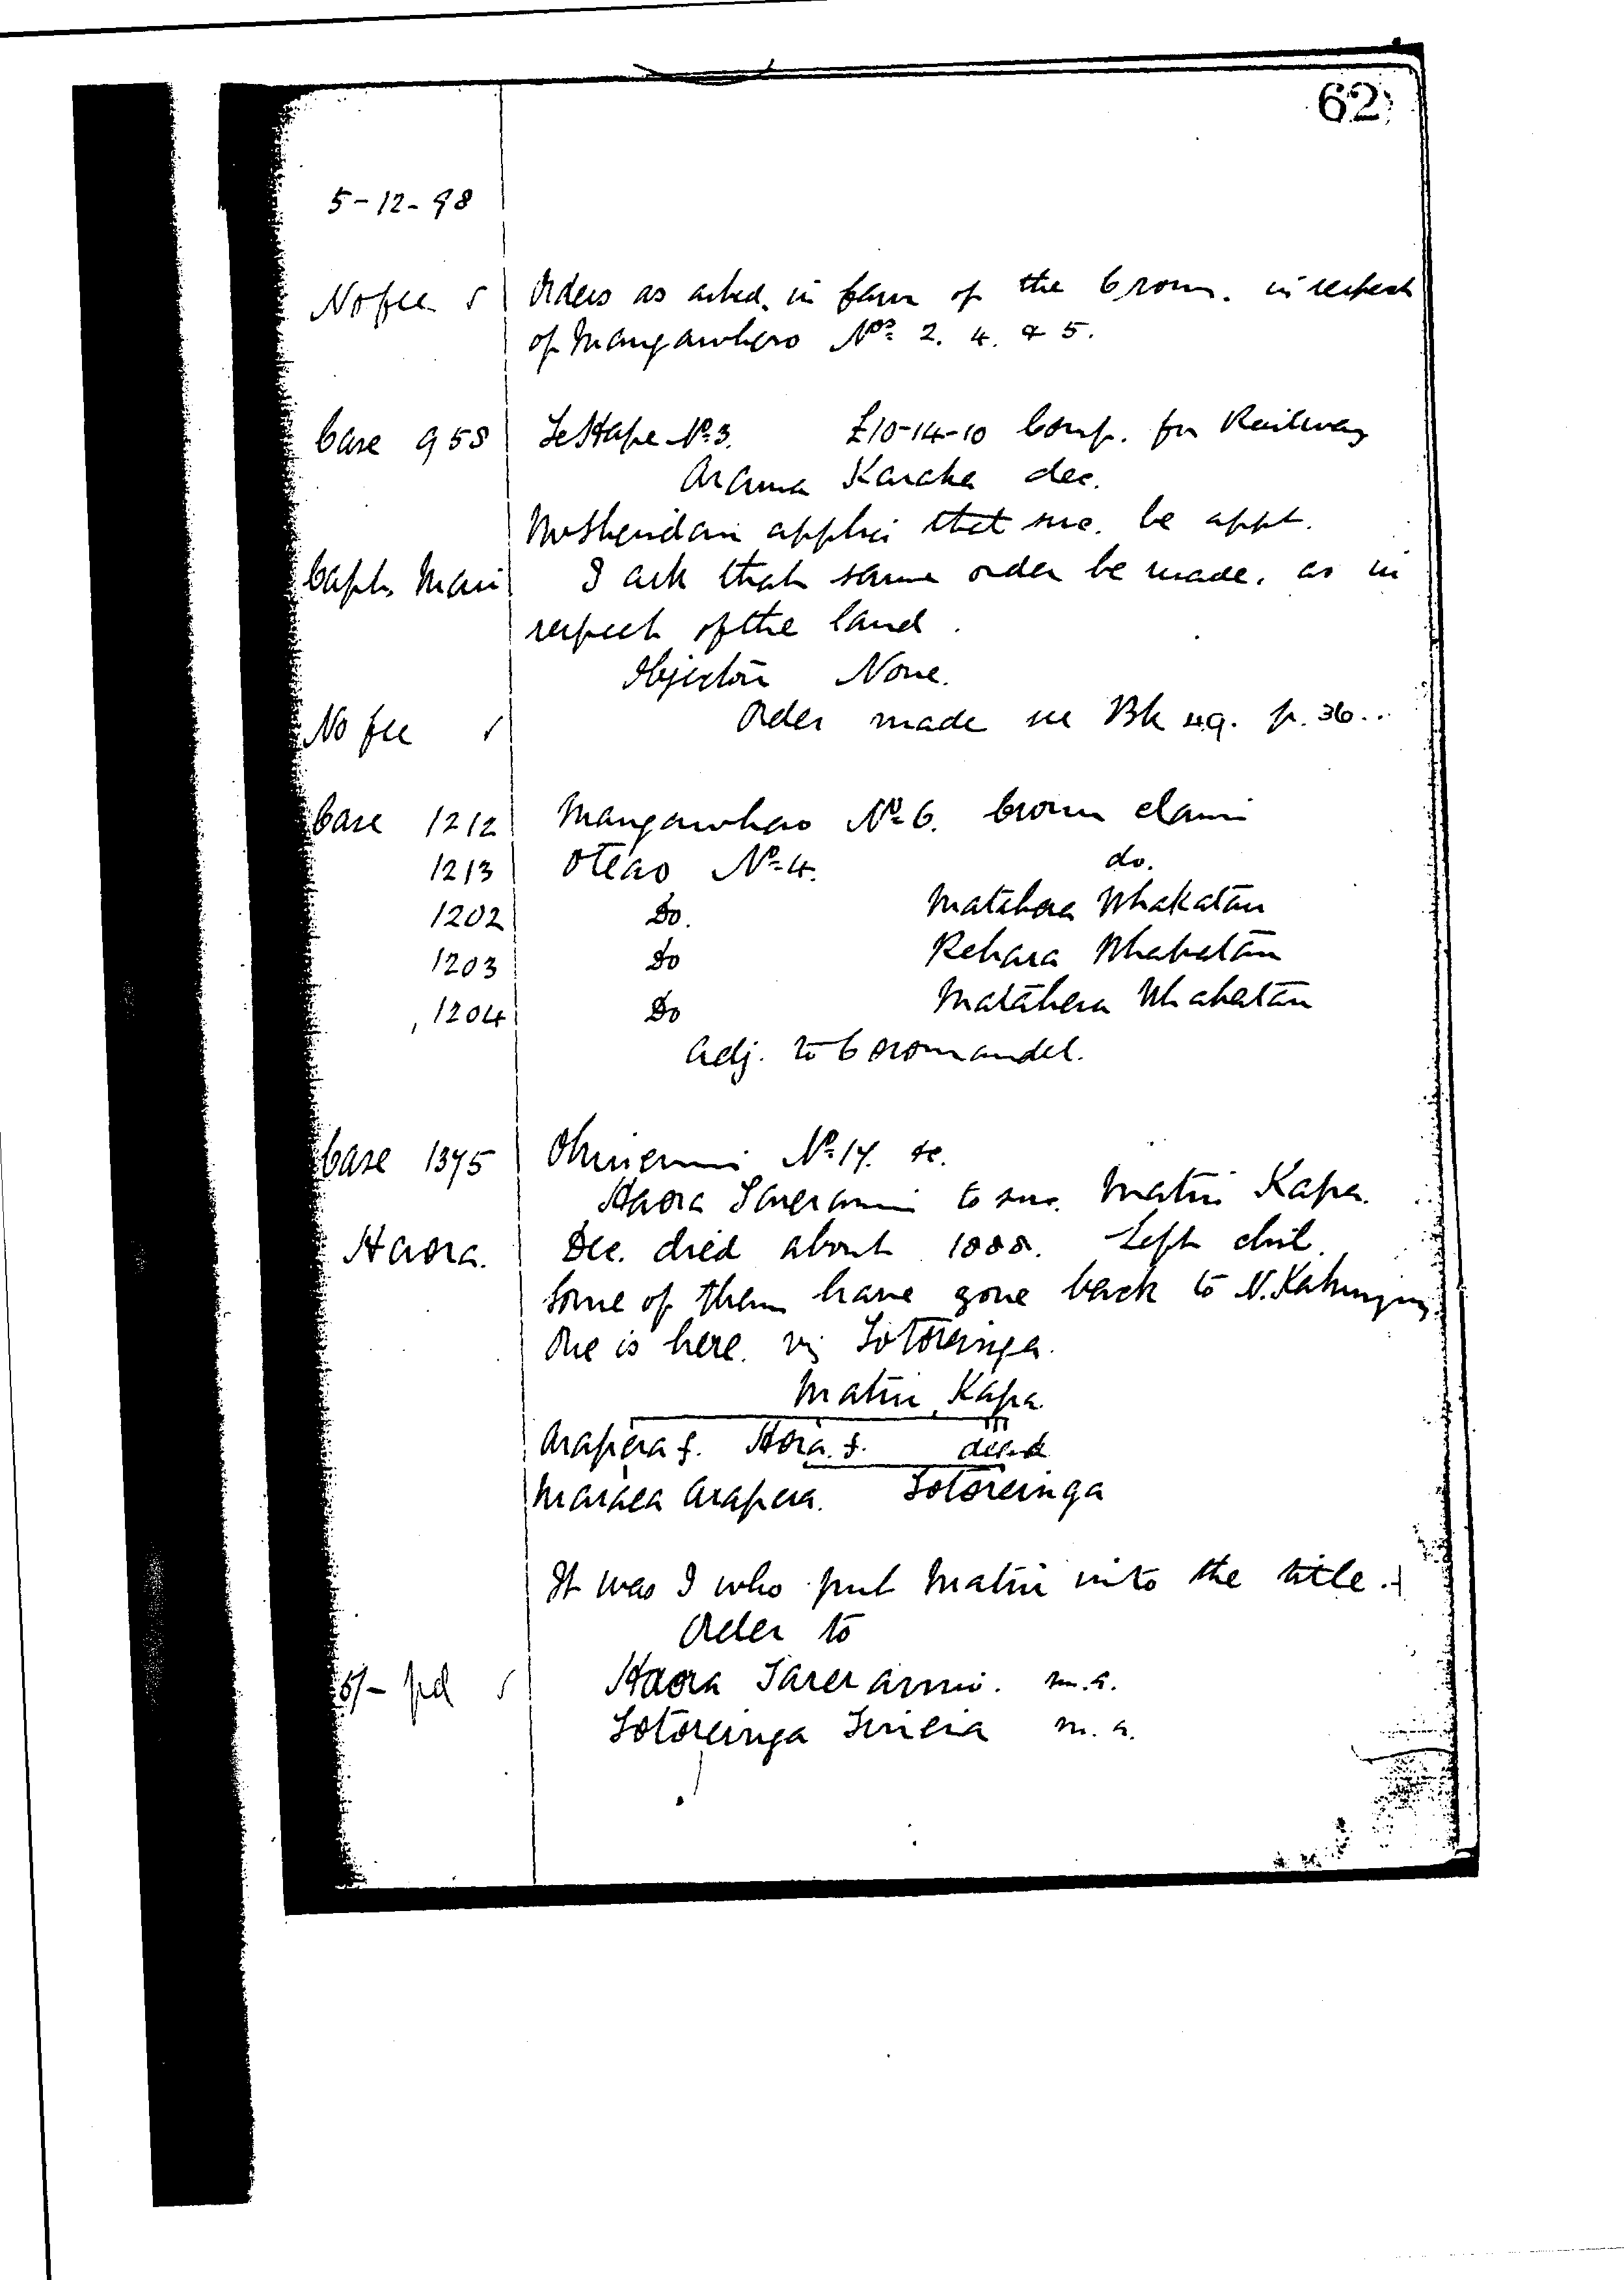 62
5-12-98
No fee Orders as asked in favr of the Crown. in respect
of Mangawhero Nos 2. 4. & 5.
Case 958 Te Hape No 3. £10-14-10 Comp. for Railway
Arama Karaka dec.
Mr Sheridan applies that suc. be appt.
Capt. Mair I ask that same order be made. as in
respect of the land.
Objectors None.
No fee Order made see Bk 49. p. 36..
Case 1212 Mangawhero No 6. Crown claim
1213 Oteao No 4. do.
1202 Do. Matahera Whakatau
1203 Do Rehara Whakatau
1204 Do Matahera Whakatau
Adj. to Coromandel.
Case 1375 No 17. &c.
Haora Tareranui to suc. Matiu Kapa.
Haora. Dec. died about 1888. Left chil.
Some of them have gone back to N. Kahungunu
One is here. viz Totoreinga.
Matiu Kapa
Arapera f. Hora. f. dead
Maraea Arapera. Totoreinga
It was I who put Matiu into the title.
Order to
5/- pd Haora Tareranui. m.a.
Totoreinga m.a.